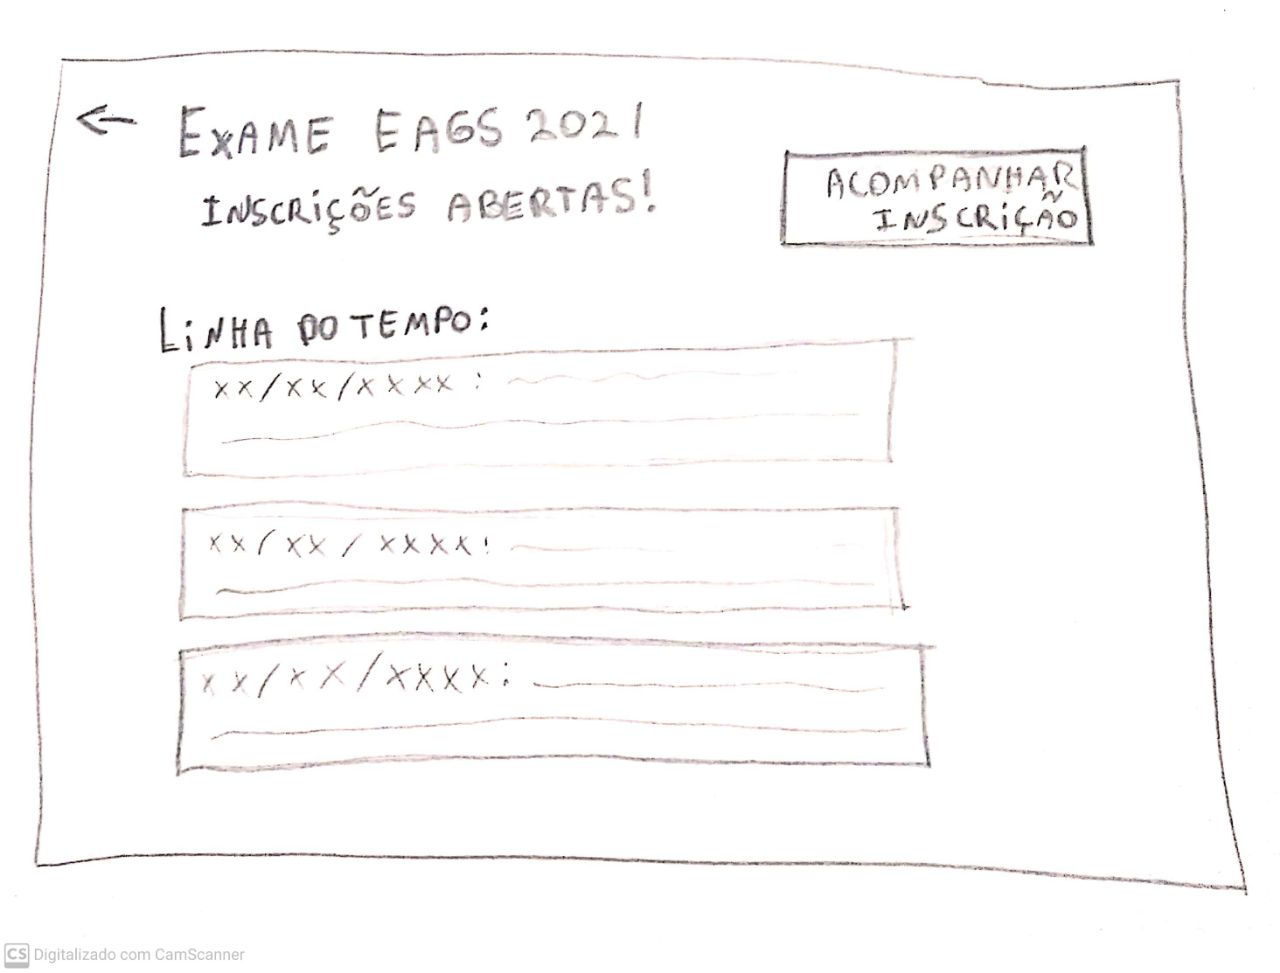 ← EXAME EAGS 2021
INSCRIÇÕES ABERTAS!
ACOMPANHAR
INSCRIÇÃO
LINHA DO TEMPO:
XX/XX/XXXX:
XX/XX/XXXX:
XX/XX/XXXX:
CS Digitalizado com CamScanner